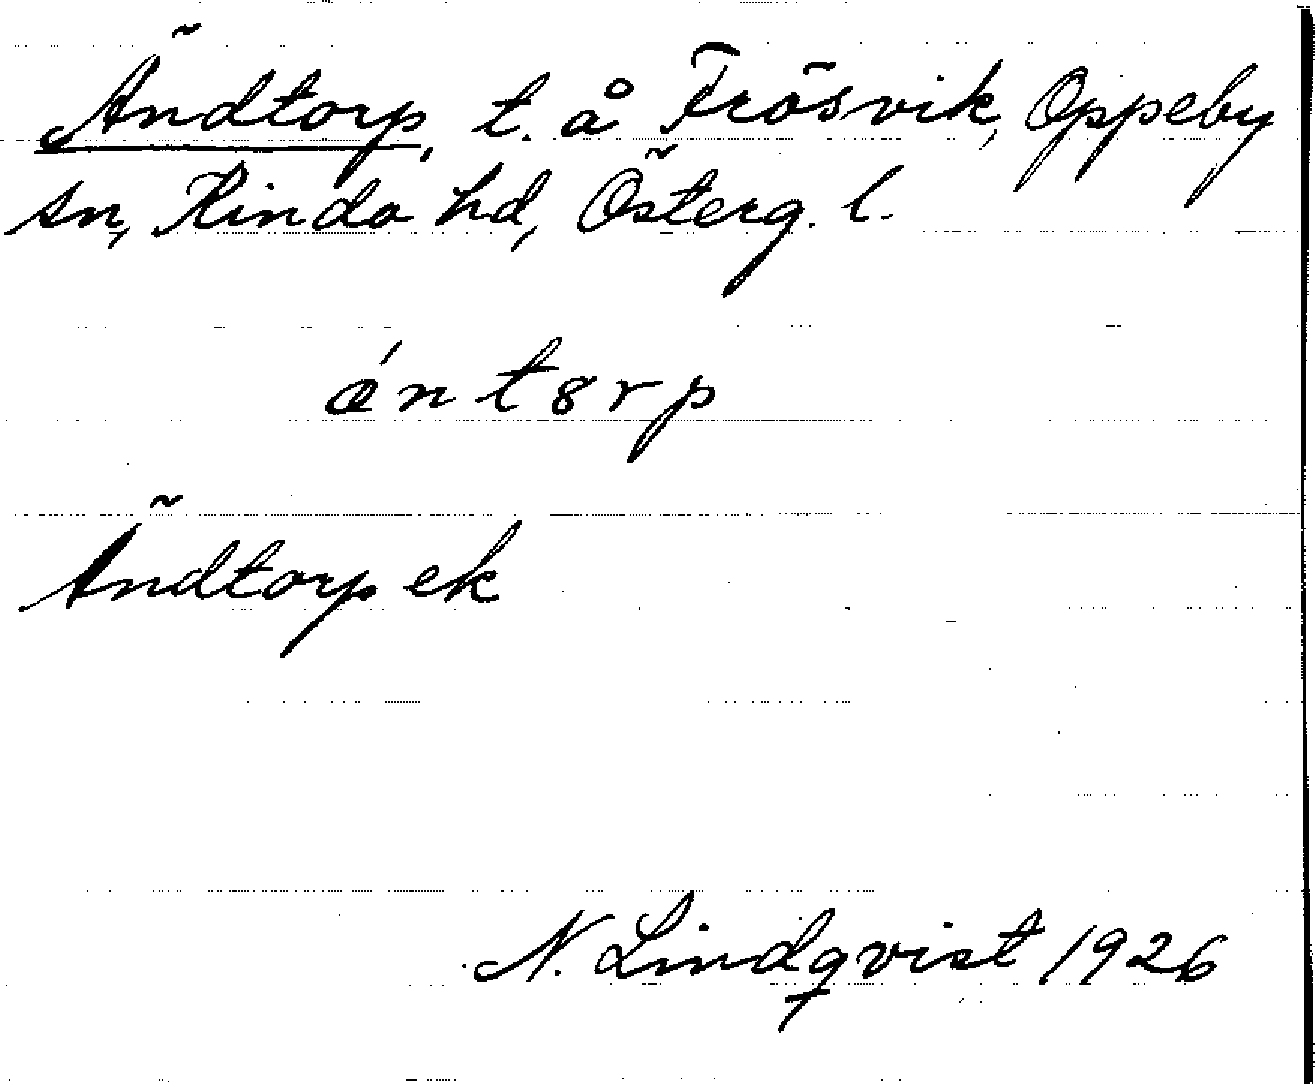 Ändtorp, t. å Frösvik, Oppeby
sn, Kinda hd, Österg. l.
ǽntɞrp
Ändtorp ek
N. Lindqvist 1926